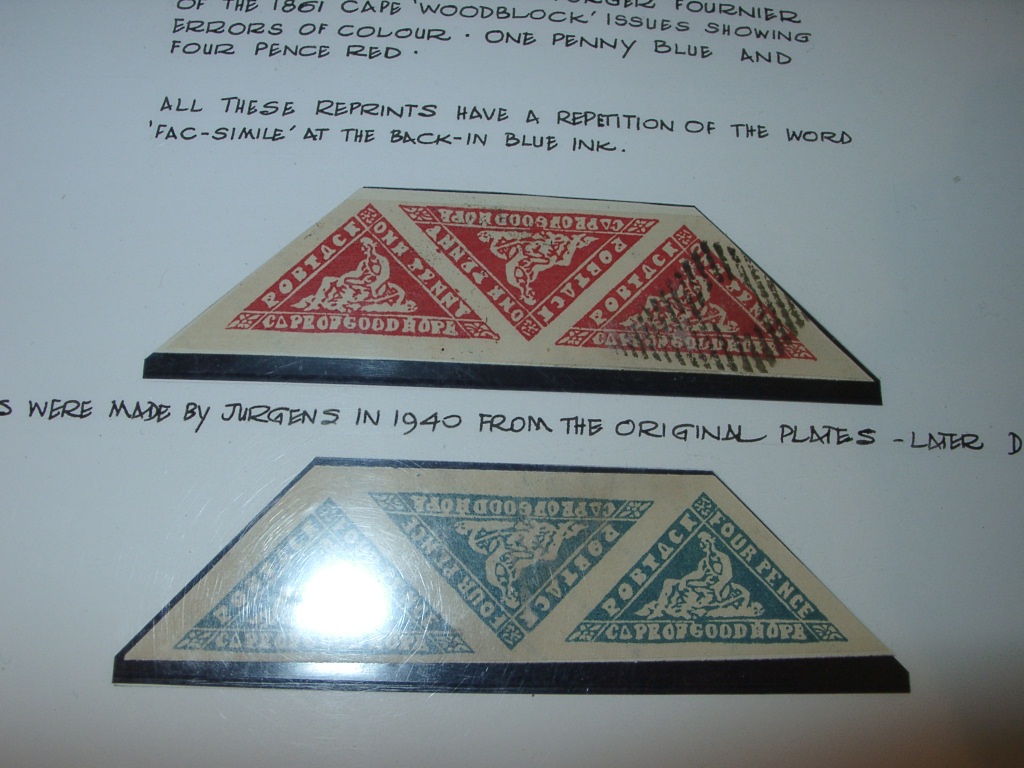 OF THE 1861 CAPE 'WOODBLOCK' ISSUES SHOWING
FOURNIER
ERRORS OF COLOUR. ONE PENNY BLUE AND
FOUR PENCE RED.
ALL THESE REPRINTS HAVE A REPETITION OF THE WORD
'FAC-SIMILE' AT THE BACK-IN BLUE INK.
POSTAGE
ONE PENNY
CAPE OF GOOD HOPE
CAPE OF GOOD HOPE
ONE PENNY
POSTAGE
POSTAGE
PENNY
S WERE MADE BY JURGENS IN 1940 FROM THE ORIGINAL PLATES - LATER D
CAPE OF GOOD HOPE
FOUR PENCE
POSTAGE
POSTAGE
FOUR PENCE
CAPE OF GOOD HOPE